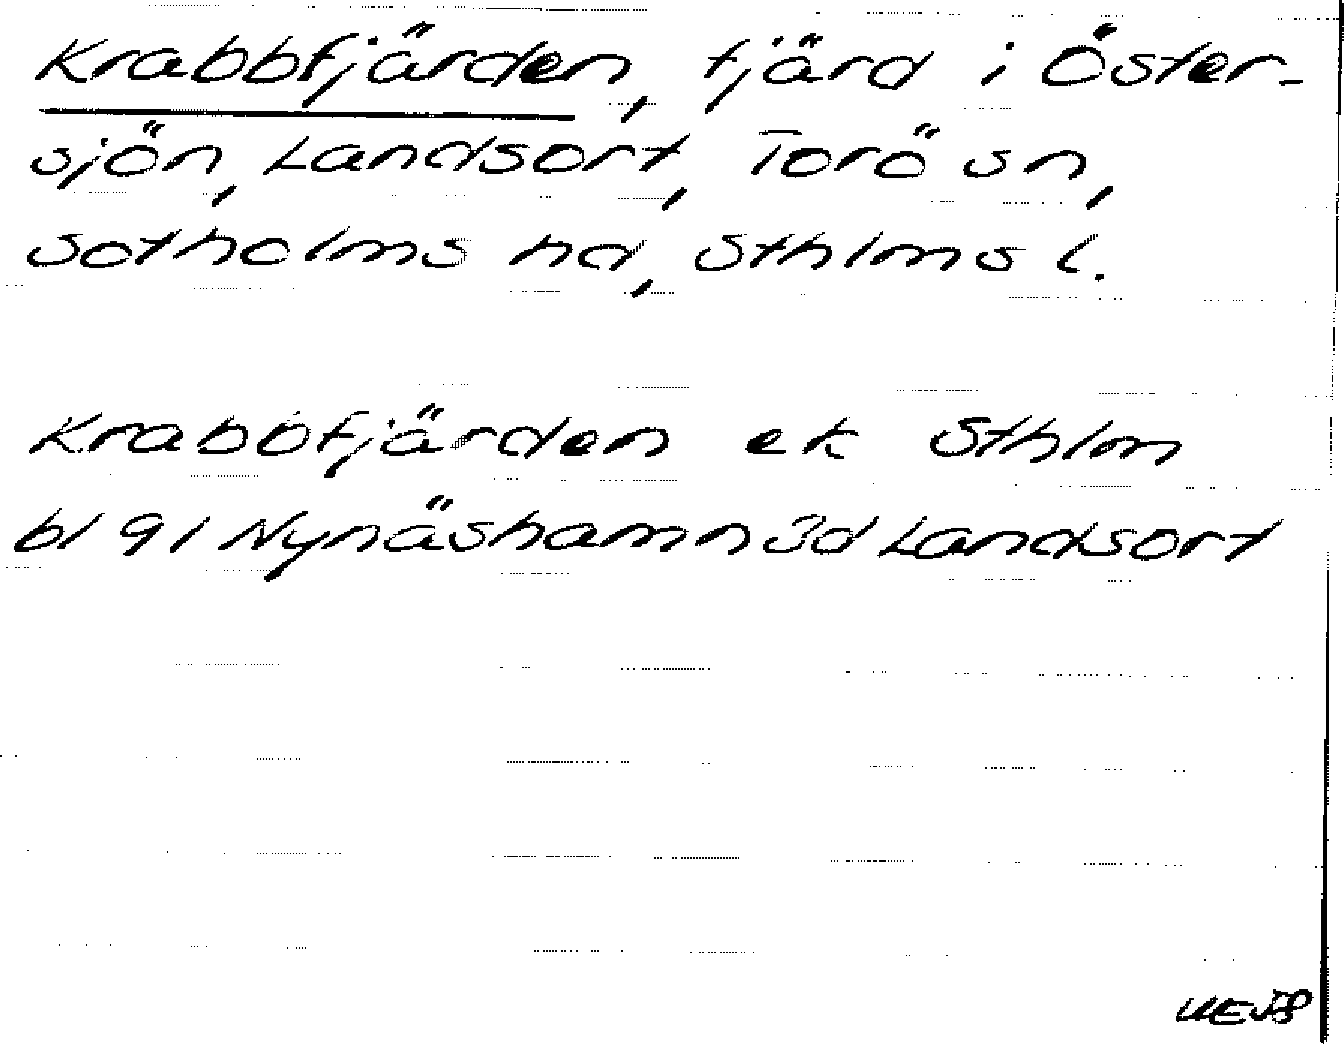 Krabbfjärden, fjärd i Öster-
sjön, Landsort, Torö sn,
Sotholms hd, Sthlms l.
Krabbfjärden ek Sthlm
bl 91 Nynäshamn 3d Landsort